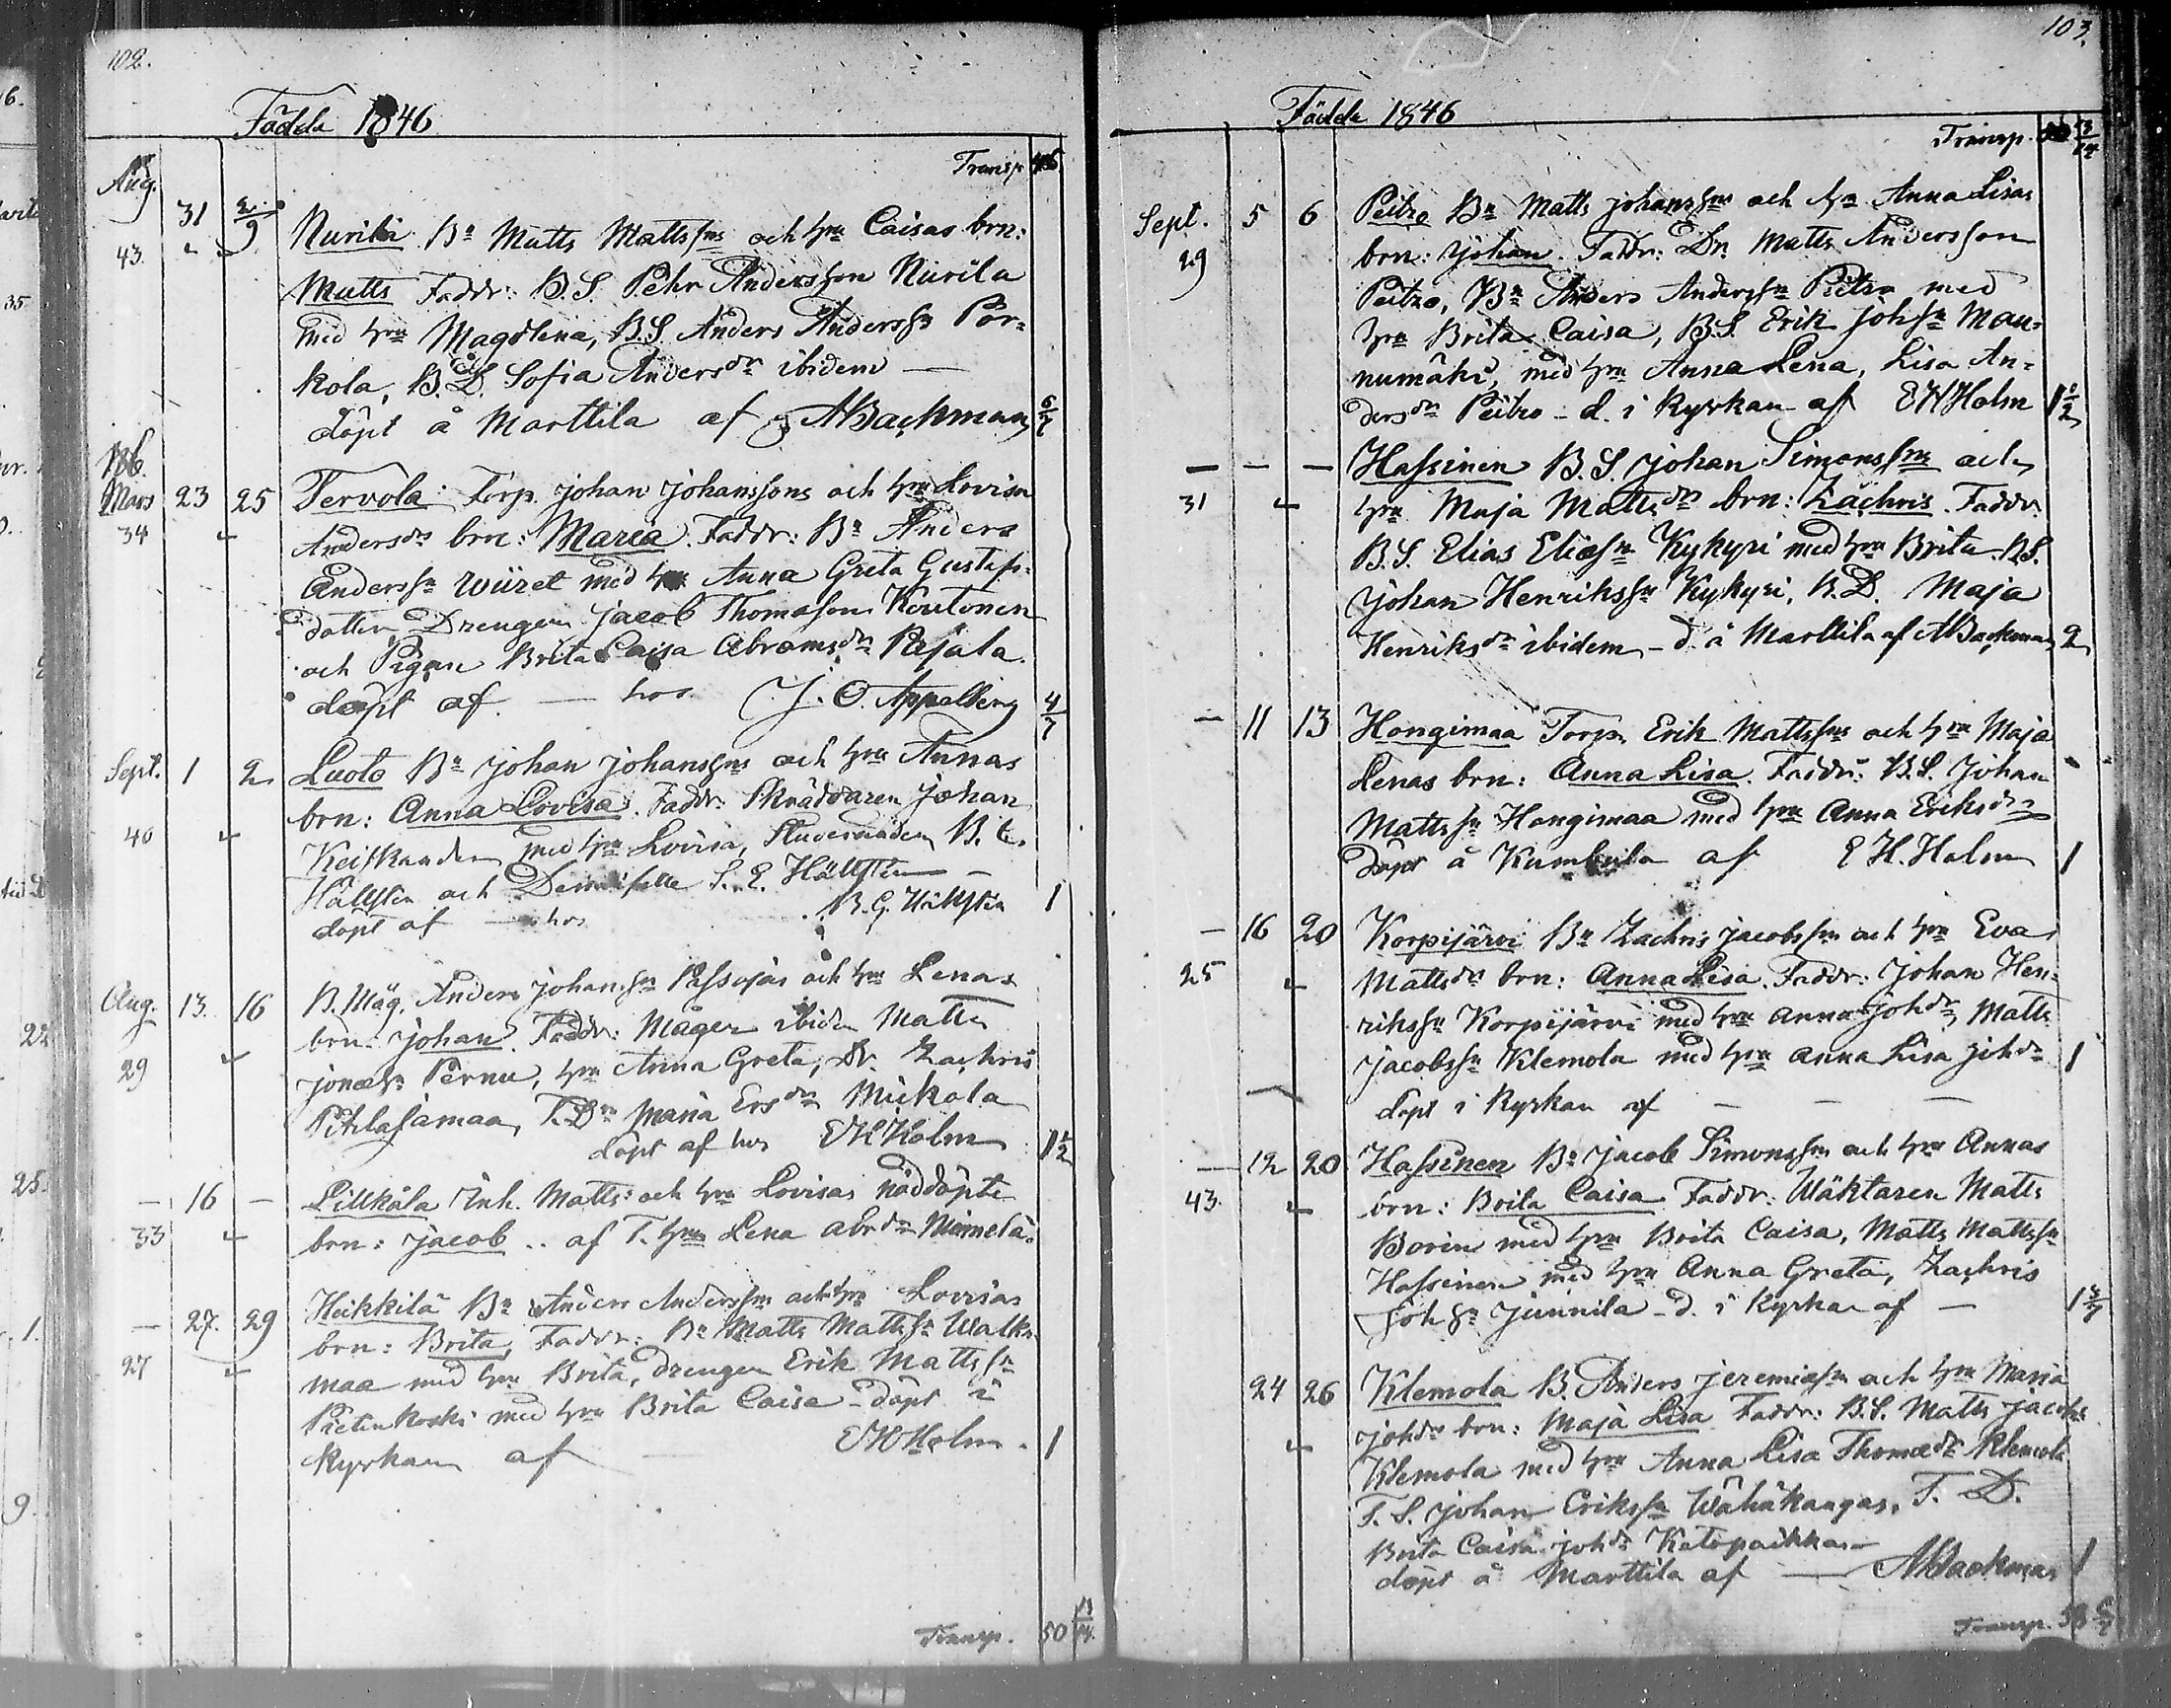 102.
Födda 1846
Transp. 45
Aug. 31 2/9 Nurila Bn Matts Mattssns och hru Caisas brn:
43. Matts Faddr: B.S. Pehr Andersson Nurila
med hru Magdlena, B.S. Anders Anderssn Por-
kola, B.D. Sofia Andersdr ibidem —
döpt å Marttila af ABackman 6/7
Mars 23 25 Tervola: Torp. Johan Johanssons och hru Lovisa
34 Andersdrs brn: Maria. Faddr: Bn Anders
Anderssn Wiiret med hru Anna Greta Gustafs-
dotter, Drengen Jacob Thomasson Koutonen
och Pigan Brita Caisa Abramsdr Pajala.
döpt af — hos J. O. Appelberg 4/7
Sept. 1 2 Luoto Bn Johan Johanssns och hru Annas
40 brn: Anna Lovisa. Faddr: Skräddaren Johan
med hru Lovisa, Studeranden B. E.
Hällsten och Demoiselle S. E. Hällsten —
döpt af — hos B. G. Hällsten 1
Aug. 13. 16 B. Måg. Anders Johanssn Passoja och hru Lenas
29 brn: Johan. Faddr: Mågen ibidm Matts
Jonæsn Pernu, hru Anna Greta, Dr. Zachris
Pihlajamaa, T.Dr Maria Ersdr Mickola
döpt af hos EHHolm 1 1/2
— 16 — Lillkåla Inh. Matts: och hru Lovisas nöddöpte
33 brn: Jacob .. af T. hru Lena Abrdr Niemelä.
— 27. 29 Heikkilä Bn Anders Anderssns och hru Lovisas
27 brn: Brita, Faddr: Bn Matts Mattssn Walk-
maa med hru Brita, drengen Erik Mattssn
Pietinkoski med hru Brita Caisa - döpt i
kyrkan af — EHHolm. 1
Transp. 50 13/14.
103.
Födda 1846
Transp. 50 13/14
Sept. 5 6 Peitzo Bn Matts Johanssns och hru Anna Lisas
29 brn: Johan. Faddr: Dr. Matts Andersson
Peitzo, Bn Anders Anderssn Peitzo med
hru Brita Caisa, B.S. Erik Johsn Man-
numäki, med hru Anna Lena, Lisa An-
dersdr Peitzo - d. i kyrkan af EHHolm 1 1/2
— — — Hassinen B.S. Johan Simonssns och
31 hru Maja Mattsdrs brn: Zachris. Faddr.
B.S. Elias Eliæsn Kykyri med hru Brita B.S.
Johan Henrikssn Kykyri, B.D. Maja
Henriksdr ibidem - d. å Marttila af ABackman 2
— 11 13 Hongimaa Torp. Erik Mattssns och hru Maja
Lenas brn: Anna Lisa. Faddr: B.S. Johan
Mattssn Hongimaa med hru Anna Eriksdr
döpt å af E. H. Holm 1
— 16 20 Korpijärvi Bn Zachris Jacobssns och hru Eva
25 Mattsdrs brn: Anna Lisa. Faddr: Johan Hen-
rikssn Korpijärvi med hru Anna Johdr, Matts
Jacobssn Klemola med hru Anna Lisa Johdr 1
döpt i kyrkan af — — —
— 12 20 Hassinen Bn Jacob Simonssns och hru Annas
43. brn: Brita Caisa Faddr: Wäktaren Matts
Borin med hru Brita Caisa, Matts Mattssn
Hassinen med hru Anna Greta, Zachris
Johsn Junnila - d. i kyrkan af —
24 26 Klemola B. Anders Jeremiæsns och hru Maria
Johdrs brn: Maja Lisa Faddr: B.S. Matts Jacobss
Klemola med hru Anna Lisa Thomædr Klemola
T. S. Johan Erikssn Wähäkangas, T. D.
Brita Caisa Johdr Katopaikka —
döpt å Marttila af — ABackman 1
Transp.